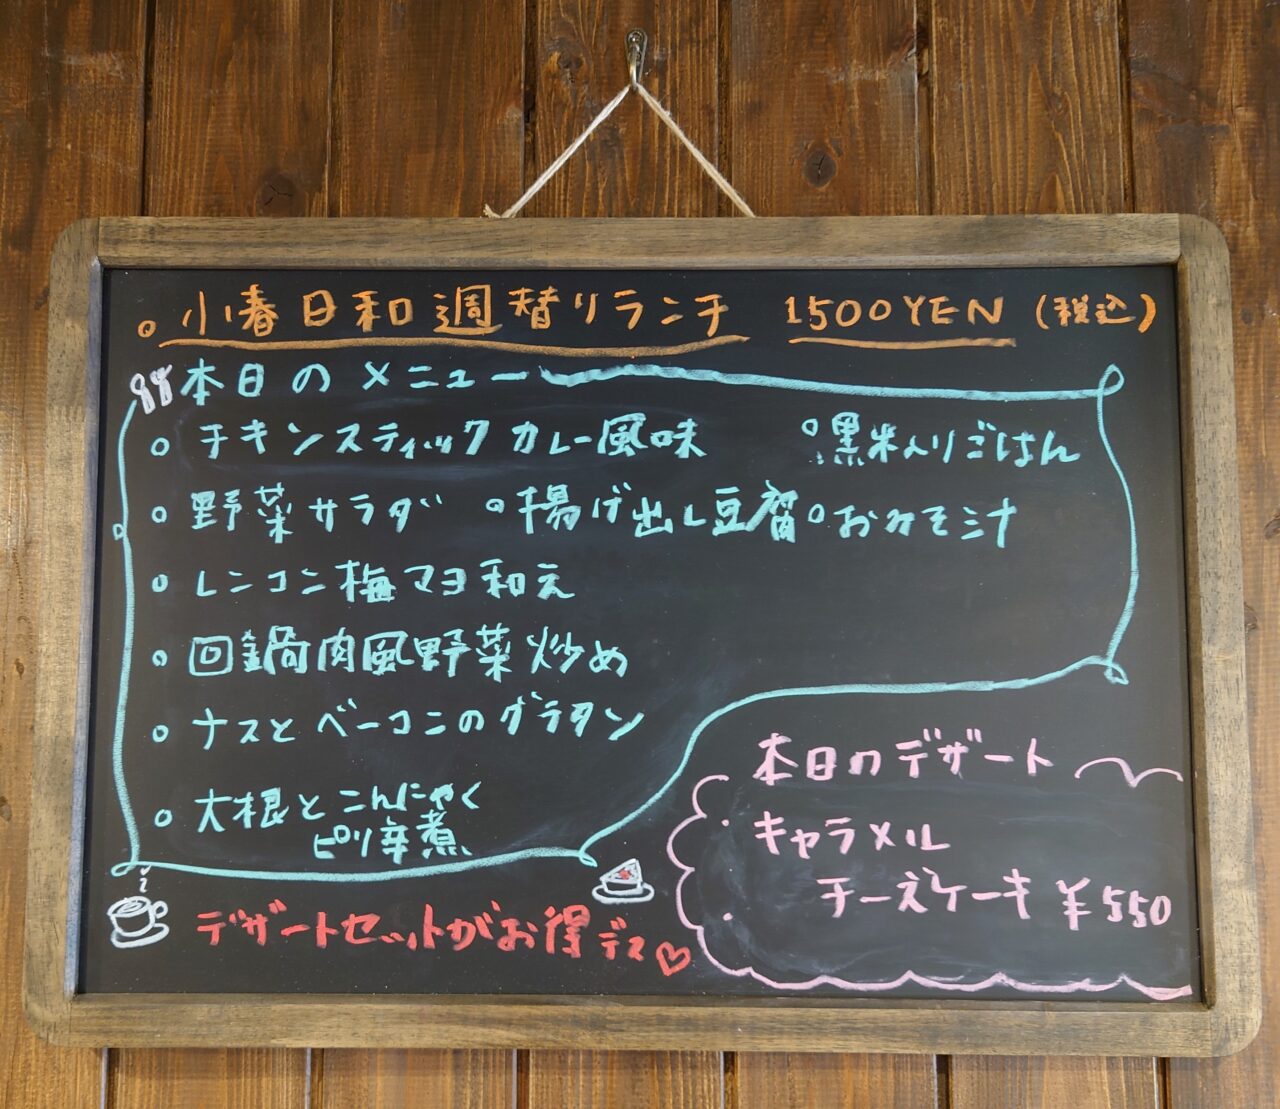 。小春日和週替りランチ 1500YEN (税込)
本日のメニュー
。チキンスティックカレー風味 。黒米入りごはん
。野菜サラダ 。揚げ出し豆腐 。おみそ汁
。レンコン梅マヨ和え
。回鍋肉風野菜炒め
。ナスとベーコンのグラタン
。大根とこんにゃく
ピリ辛煮
本日のデザート
・キャラメル
・チーズケーキ ¥550
デザートセットがお得デス♡